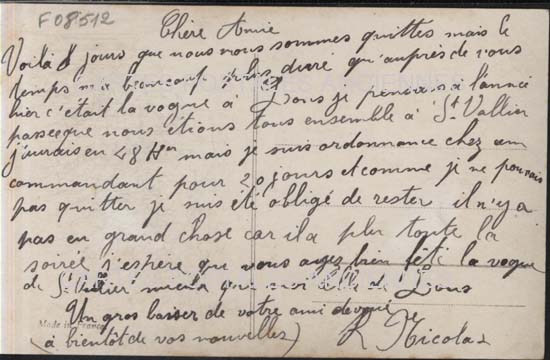 F08512
Chère Amie
Voilà 8 jours que nous nous sommes quittés mais le
temps m'a beaucoup plus duré qu'auprès de vous
hier c'était la vogue à Lons je pensais à l'année
passée que nous étions tous ensemble à St Vallier
j'aurais eu 48 Hres mais je suis ordonnance chez un
commandant pour 20 jours et comme je ne pouvais
pas quitter je suis été obligé de rester il n'y a
pas eu grand chose car il a plu toute la
soirée j'espère que vous avez bien fêté la vogue
de St Vallier mieux que moi celle de Lons
Un gros baiser de votre ami dévoué
Made in France
(à bientôt de vos nouvelles) Nicolas